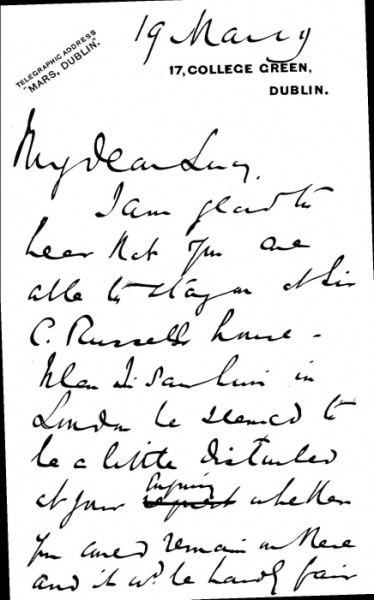 19 May 9
TELEGRAPHIC ADDRESS
"MARS, DUBLIN."
17, COLLEGE GREEN,
DUBLIN.
My dear Lucy,
I am glad to
hear that you are
able to stay on at Sir
C. Russells house -
When I saw him in
London he seemed to
be a little disturbed
at your enquiry whether
you could remain on there
and it wd. be hardly fair